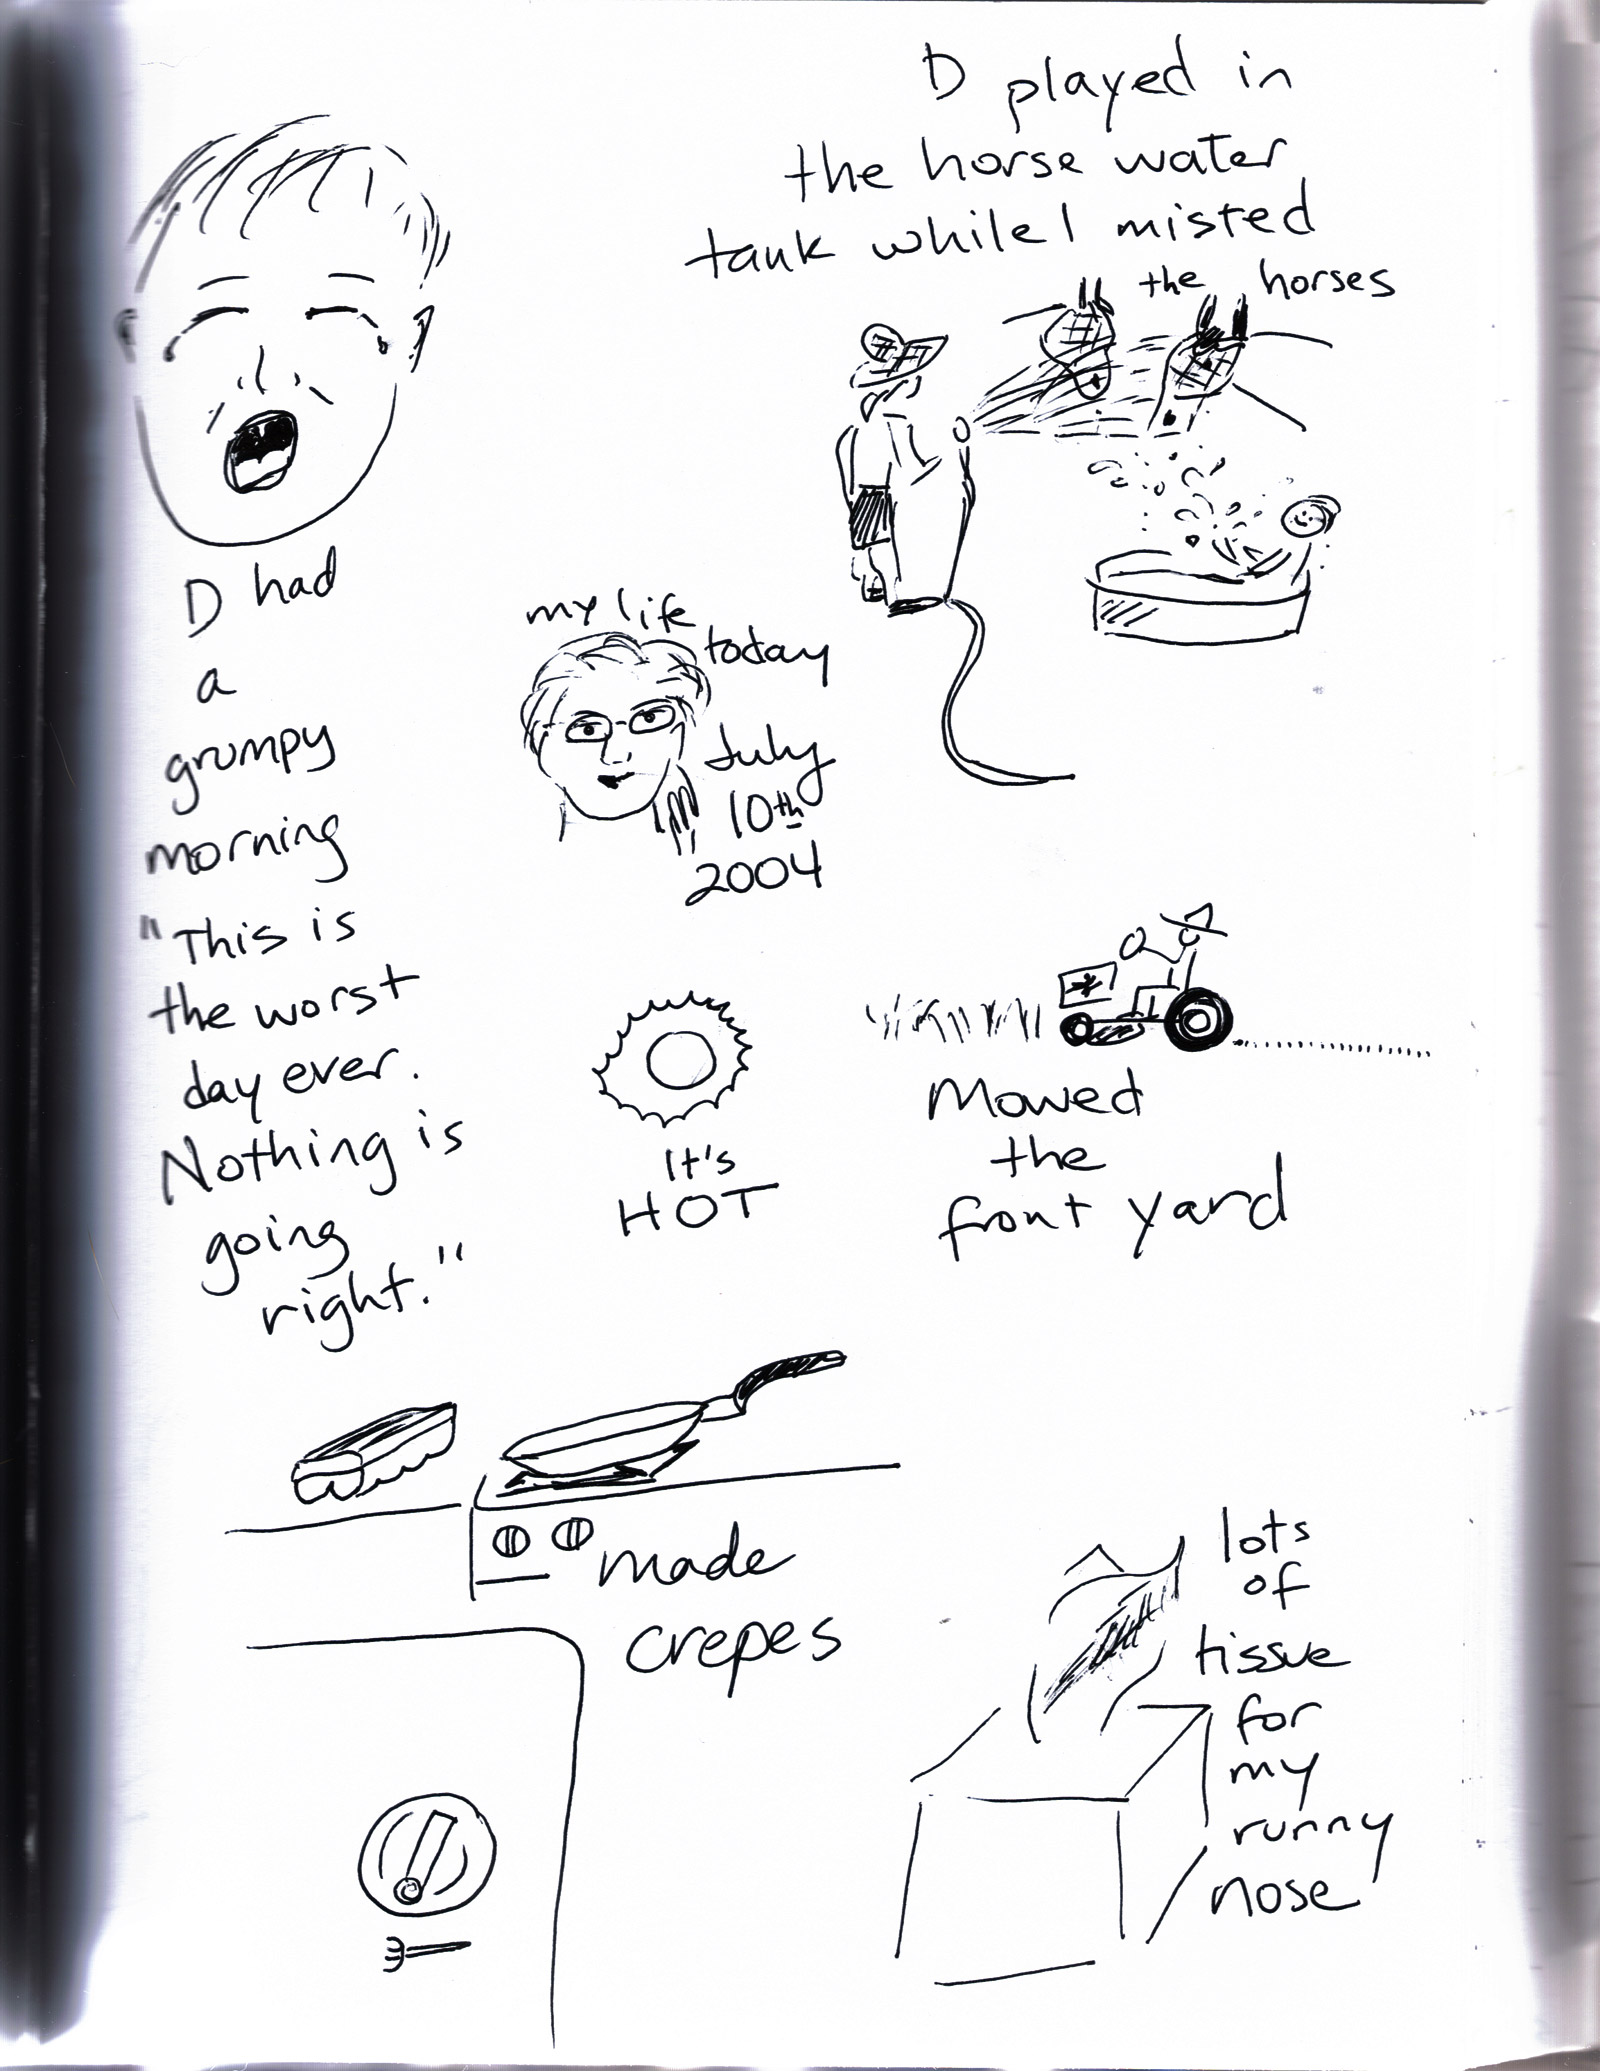 D played in
the horse water
tank while I misted
the horses
D had
a
grumpy
morning
"This is
the worst
day ever.
Nothing is
going
right."
my life
today
July
10th
2004
It's
HOT
Mowed
the
front yard
made
crepes
lots
of
tissue
for
my
runny
nose